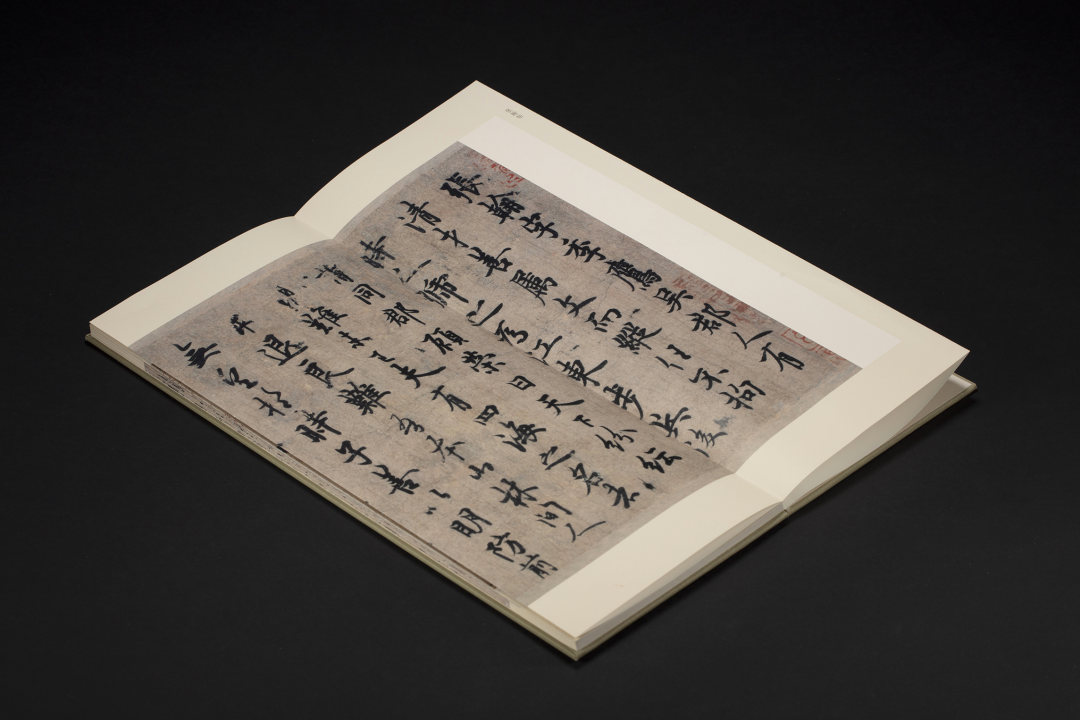 張翰字季鷹吳郡人有
清才善屬文而縱任不拘
時人號之為江東步兵後
謂同郡顧榮曰天下紛紜
禍難未已夫有四海之名者
求退良難吾本山林間人
無望於時子善以明防前